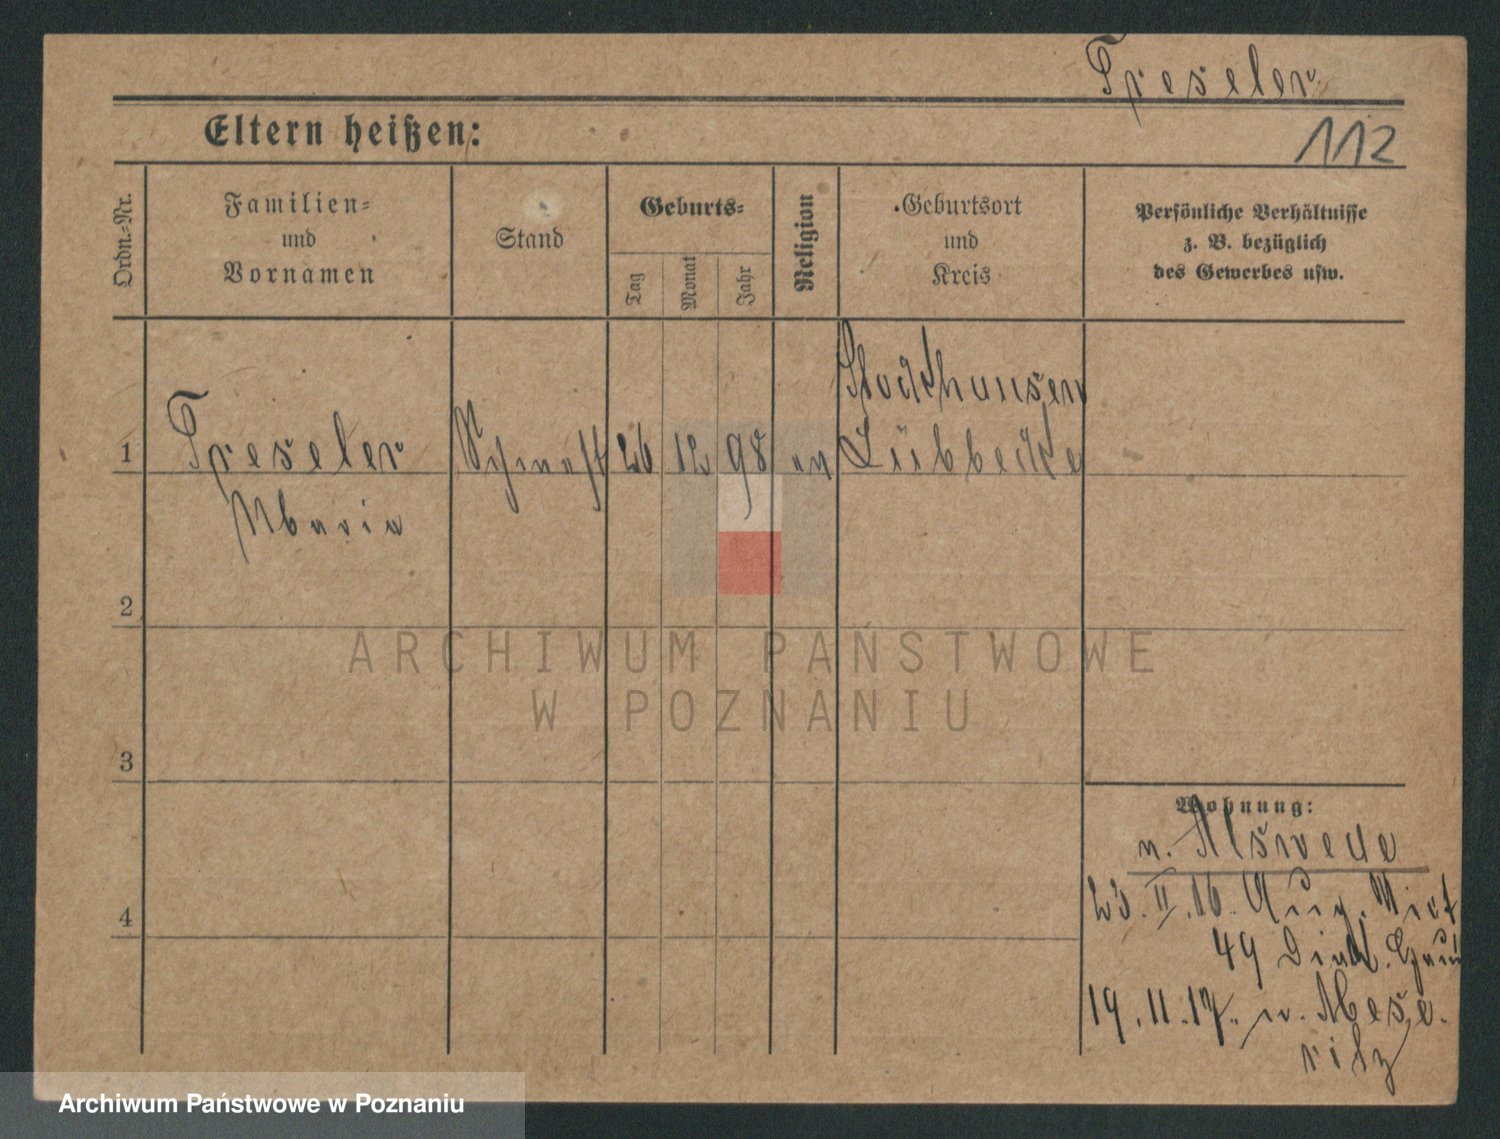 Treseler
112
Eltern heißen:
Ordn.-Nr.
Familien-
und
Vornamen
Stand
Geburts-
Tag
Monat
Jahr
Religion
Geburtsort
und
Kreis
Persönliche Verhältnisse
z. B. bezüglich
des Gewerbes usw.
1
Treseler
Maria
Schwest
26
12
98
ev
Stockhausen
Lübbecke
2
3
4
Wohnung:
n. Alswede
23. II. 16. Aug. Vict
49 Diak.
19. 11. 17. n. Mese-
ritz
ARCHIWUM PAŃSTWOWE
W POZNANIU
Archiwum Państwowe w Poznaniu